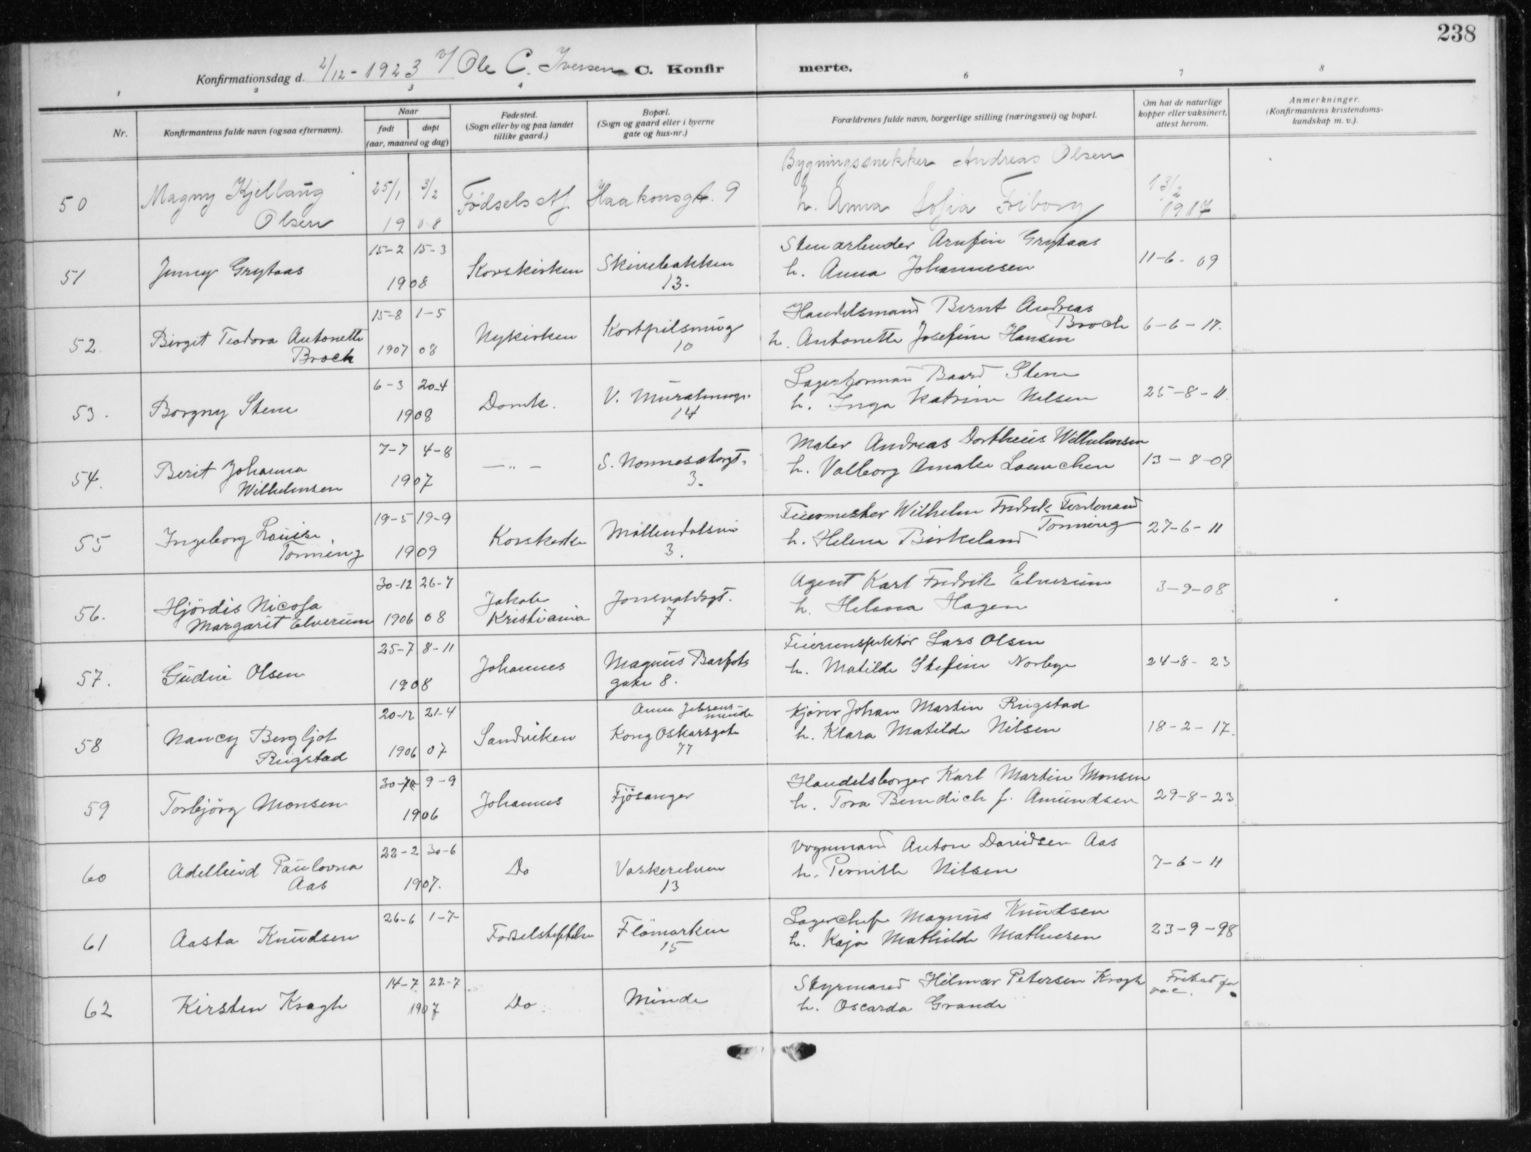 238
Konfirmationsdag d. 2/12-1923 v/ Ole C. Iversen C. Konfirmerte.
1 2 3 4 6 7 8
Nr.
Konfirmantens fulde navn (ogsaa efternavn).
Naar
født døpt
(aar, maaned og dag)
Fødested.
(Sogn eller by og paa landet
tillike gaard.)
Bopæl.
(Sogn og gaard eller i byerne
gate og hus-nr.)
Forældrenes fulde navn, borgerlige stilling (næringsvei) og bopæl.
Om hat de naturlige
kopper eller vaksinert,
attest herom.
Anmerkninger.
(Konfirmantens kristendoms-
kundskap m. v.).
50 Magny Kjellaug Olsen 25/1 3/2 1908 Fødselsst. Haakonsgt. 9
Bygningssnekker Andreas Olsen
h. Anna Sofia Friborg
13/2 1917
51 Jenny Grytaas 15-2 15-3 1908 Korskirken Skivebakken 13.
Stenarbeider Arnfin Grytaas
h. Anna Johannesen
11-6-09
52. Birgit Teodora Antonette Broch 15-8 1-5 1907 08 Nykirken 10
Handelsmand Bernt Andreas Broch
h. Antonette Josefine Hansen
6-6-17.
53. Borgny Stene 6-3 20-4 1908 Domk. V. Muralmenn. 14
Lagerformand Baard Stene
h. Inga Katrine Nilsen
25-8-11
54. Berit Johanna Wilhelmsen 7-7 4-8 1907 —"— S. 3.
Maler Andreas Dortheus Wilhelmsen
h. Valborg Amalie
13-8-09
55 Ingeborg Louise Tonning 19-5 19-9 1909 Korskirken Møllendalsvei 3.
Feiermester Wilhelm Fredrik Ferdinand Tonning
h. Helene Birkeland
27-6-11
56. Hjördis Nicosa Margarit Elverum 30-12 26-7 1906 08 Jakob Kristiania Jonsvoldsgt. 7
Agent Karl Fredrik Elverum
h. Helma Hagen
3-9-08
57. Gudni Olsen 25-7 8-11 1908 Johannes Magnus Barfots gate 8.
Feierinspektör Lars Olsen
h. Matilde Stefine Norbye
24-8-23
58 Nancy Bergljot Ringstad 20-12 21-4 1906 07 Sandviken
Anna Jebsens minde
Kong Oskarsgate 77
Kjører Johan Martin Ringstad
h. Klara Matilde Nilsen
18-2-17.
59 Torbjörg Monsen 30-7 9-9 1906 Johannes Fjösanger
Handelsborger Karl Martin Monsen
h. Tora Bendich f. Amundsen
29-8-23
60 Adelheid Paulovna Aas 22-2 30-6 1907. Do Vaskerelven 13
Vognmand Anton Davidsen Aas
h. Pernille Nilsen
7-6-11
61 Aasta Knudsen 26-6 1-7 Fødselsstiftelsen Flömarken 15
Lagerchef Magnus Knudsen
h. Kaja Mathilde Mathiesen
23-9-98
62 Kirsten Kragh 14-7. 22-7 1907 Do. Minde
Styrmand Hilmar Petersen Kragh
h. Oscarda Grande
Fritat for vac.